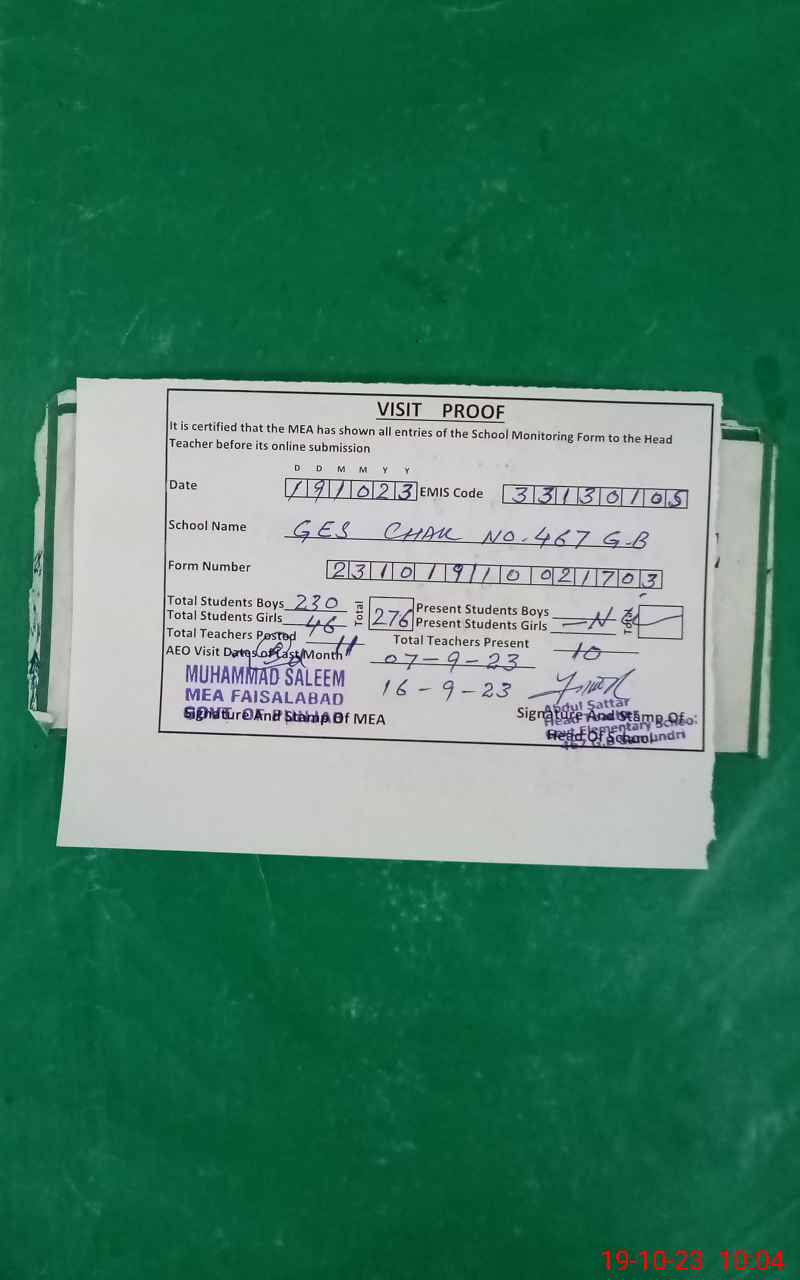 VISIT PROOF
It is certified that the MEA has shown all entries of the School Monitoring Form to the Head
Teacher before its online submission
D D M M Y Y
Date 191023 EMIS Code 33130105
School Name GES CHAK NO. 467 G-B
Form Number 23101910021703
Total Students Boys 230 Total 276 Present Students Boys
Total Students Girls 46 Present Students Girls Total
Total Teachers Posted 11 Total Teachers Present 10
AEO Visit Dates of Last Month 07-9-23
16-9-23
MUHAMMAD SALEEM
MEA FAISALABAD
GOVT. OF PUNJAB
Signature And Stamp Of MEA
Signature And Stamp Of
Head Of School
Abdul Sattar
Elementary School
19-10-23 10:04